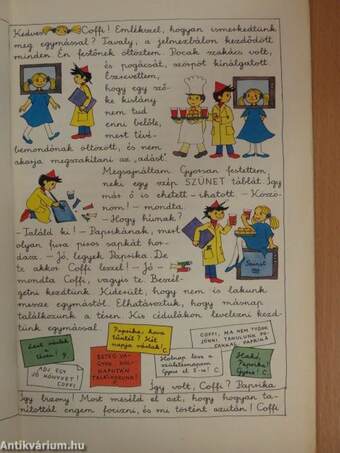 Kedves Coffi! Emlékszel, hogyan ismerkedtünk
meg egymással? Tavaly, a jelmezbálon kezdődött
minden. Én festőnek öltöztem. Pocak szakács volt,
és pogácsát, szörpöt kínálgatott.
Észrevettem,
hogy egy sző-
ke kislány
nem tud
enni belőle,
mert tévé-
bemondónak öltözött, és nem
akarja megszakítani az „adást".
Megsajnáltam. Gyorsan festettem
neki egy szép SZÜNET táblát. Így
már ő is ehetett-ihatott. – Köszö-
nöm! – mondta.
– Hogy hívnak?
– Találd ki! – Paprikának, mert
olyan fura piros sapkát hor-
dasz. – Jó, legyek Paprika. De
te akkor Coffi leszel! – Jó –
mondta Coffi, vagyis te. Beszél-
getni kezdtünk. Kiderült, hogy nem is lakunk
messze egymástól. Elhatároztuk, hogy másnap
találkozunk a téren. Kis cédulákon levelezni kezd-
tünk egymással.
Szünet
Paprika, hova
tűntél? Két
napja várlak!
C
COFFI, MA NEM TUDOK
JÖNNI. TANULUNK PO-
CAKKAL. PAPRIKA
ADJ EGY
JÓ KÖNYVET!
COFFI
Holnap lesz a
születésnapom.
Gyere el 5-re! C.
Halló,
Paprika!
Gyere! C.
Így volt, Coffi? Paprika
Így bizony! Most meséld el azt, hogy hogyan ta-
nítottál engem focizni, és mi történt azután! Coffi
Antikvárium.hu